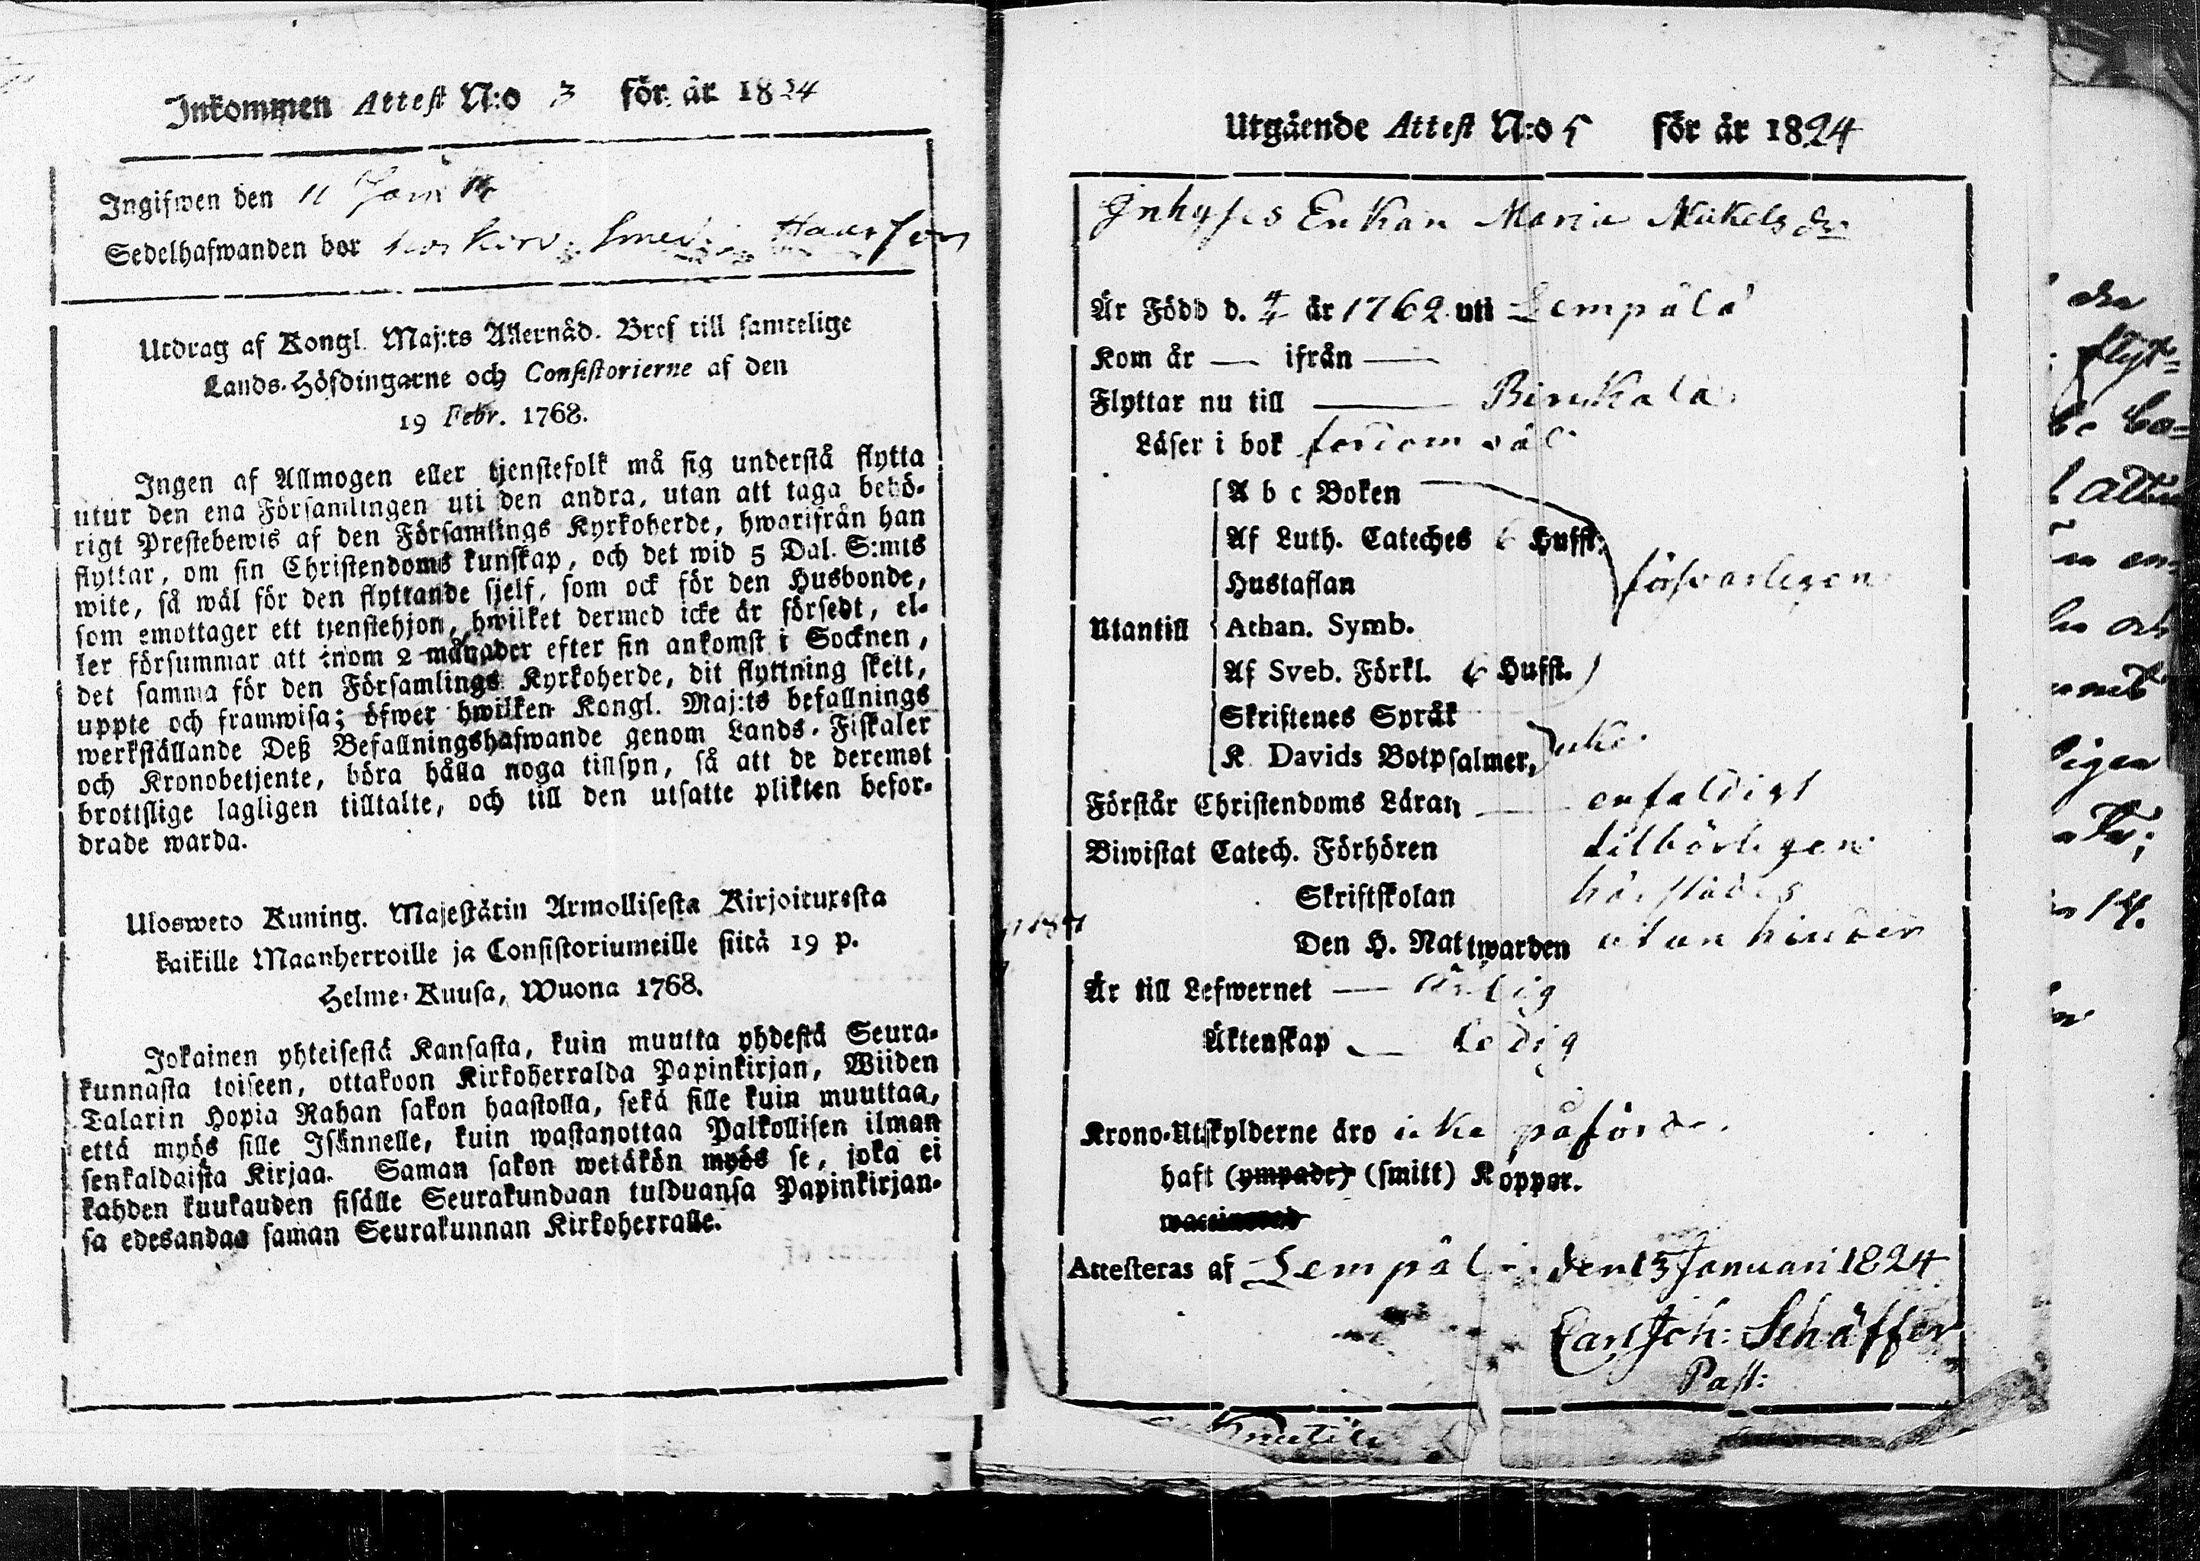 Inkommen Attest N:o 3 för år 1824
Ingifwen den 11
Sedelhafwanden bor hos
Utdrag af Kongl. Maj:ts Allernåd. Bref till samtelige
Lands-Höfdingarne och Consistorierne af den
19 Febr. 1768.
Ingen af Allmogen eller tjenstefolk må sig understå flytta
utur den ena Församlingen uti den andra, utan att taga behö-
rigt Prestebewis af den Församlings Kyrkoherde, hwarifrån han
flyttar, om sin Christendoms kunskap, och det wid 5 Dal. S:mts
wite, så wäl för den flyttande sjelf, som ock för den Husbonde,
som emottager ett tjenstehjon, hwilket dermed icke är försedt, el-
ler försummar att inom 2 månader efter sin ankomst i Socknen,
det samma för den Församlings Kyrkoherde, dit flyttning skett,
uppte och framwisa; öfwer hwilken Kongl. Maj:ts befallnings
werkställande Deß Befallningshafwande genom Lands-Fiskaler
och Kronobetjente, böra hålla noga tillsyn, så att de deremot
brottslige lagligen tilltalte, och till den utsatte plikten befor-
drade warda.
Ulosweto Kuning. Majestätin Armollisesta Kirjoituxesta
kaikille Maanherroille ja Consistoriumeille siitä 19 p.
Helme-Kuusa, Wuona 1768.
Jokainen yhteisestä Kansasta, kuin muutta yhdestä Seura-
kunnasta toiseen, ottakoon Kirkoherralda Papinkirjan, Wiiden
Talarin Hopia Rahan sakon haastolla, sekä sille kuin muuttaa,
että myös sille Isännelle, kuin wastanottaa Palkollisen ilman
senkaldaista Kirjaa. Saman sakon wetäkön myös se, joka ei
kahden kuukauden sisälle Seurakundaan tulduansa Papinkirjan-
sa edesandaa saman Seurakunnan Kirkoherralle.
Utgående Attest N:o 5 för år 1824
Inhyses Enkan Maria Mickelsdr
Är Född d. 4/4 år 1762 uti Lempälä
Kom år — ifrån —
Flyttar nu till — Birckala
Läser i bok
A b c Boken
Af Luth. Cateches 6 Hufst.
Hustaflan försvarligen
Utantill Athan. Symb.
Af Sveb. Förkl. 6 Hufst.
Skriftenes Språk
K. Davids Botpsalmer, icke
Förstår Christendoms Läran — enfaldigt
Biwistat Catech. Förhören tilbörligen
Skriftskolan härstädes
Den H. Nattwarden utan hinder
Är till Lefwernet — ärlig
Äktenskap — Ledig
Krono-Utskylderne äro icke påförde.
haft (ympade) (smitt) Koppor.
waccinerad
Attesteras af Lempälä den 13 Januari 1824
Carl Joh: Schäffer
Past: